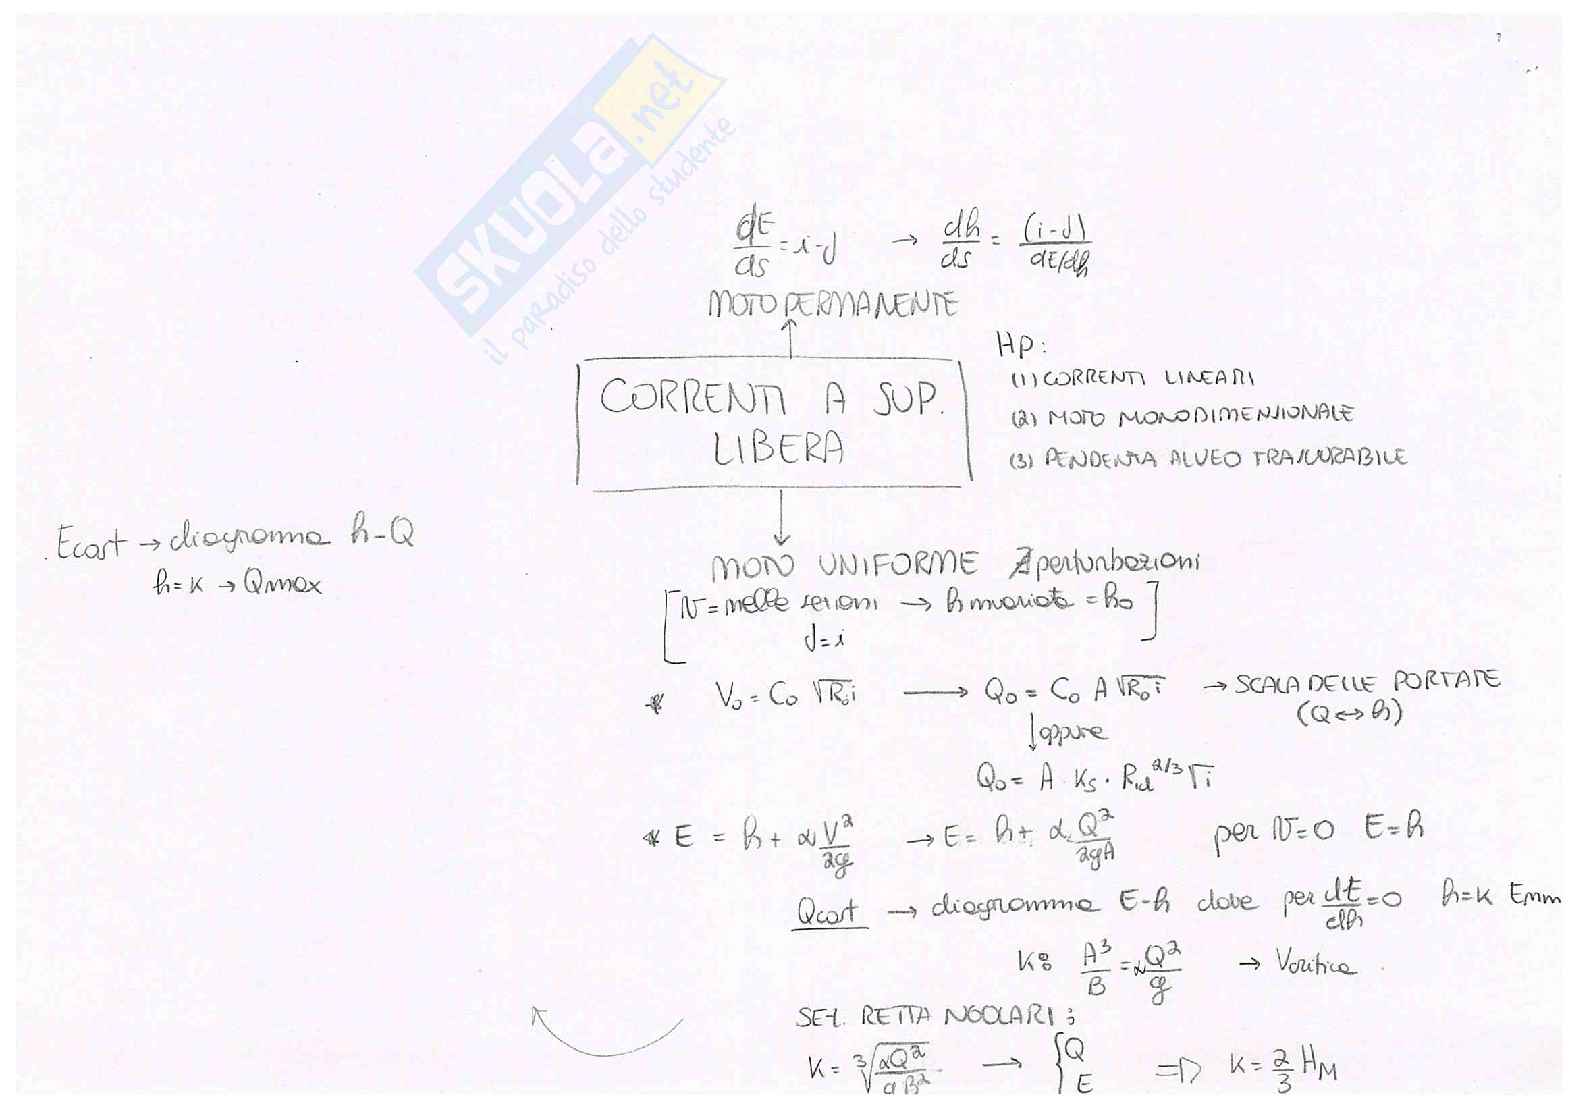 SKUOLA.net
il paradiso dello studente
dE/ds = i-J → dh/ds = (i-J)/dE/dh
MOTO PERMANENTE
CORRENTI A SUP.
LIBERA
Hp:
(1) CORRENTI LINEARI
(2) MOTO MONODIMENSIONALE
(3) PENDENZA ALVEO TRASCURABILE
Ecost → diagramma h-Q
h=K → Qmax
MOTO UNIFORME ∄ perturbazioni
[V = nelle sezioni → h invariata = h₀]
J=i
* V₀ = C₀ √R₀i → Q₀ = C₀ A √R₀i → SCALA DELLE PORTATE
(Q ↔ h)
↓ oppure
Q₀ = A · Ks · Rid^2/3 √i
* E = h + α V²/2g → E = h + α Q²/2gA per V=0 E=h
Qcost → diagramma E-h dove per dE/dh = 0 h=K Emin
K: A³/B = α Q²/g → Verifica
SEZ. RETTANGOLARI:
K = ³√αQ²/gB² → { Q E ⇒ K = 2/3 HM